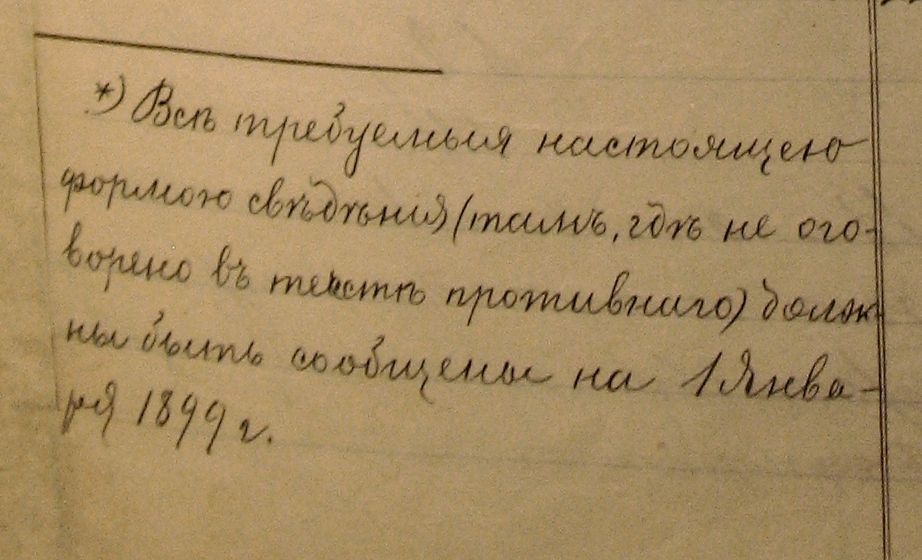 *) Всѣ требуемыя настоящею
формою свѣдѣнія (тамъ, гдѣ не ого-
ворено въ текстѣ противнаго) долж
ны быть сообщены на 1 Янва-
ря 1899 г.